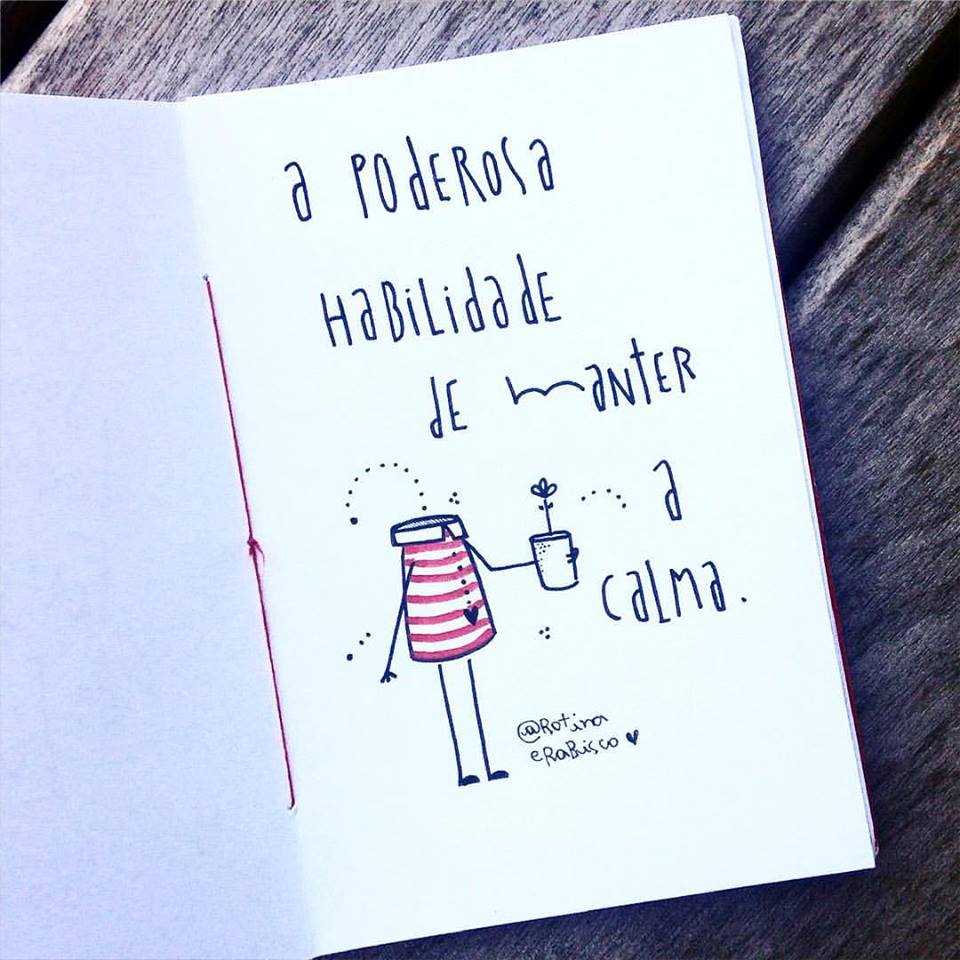 a PODEROSA
HABILIDADE
DE MANTER
A
CALMA.
@Rotina
eRaBisco ♥